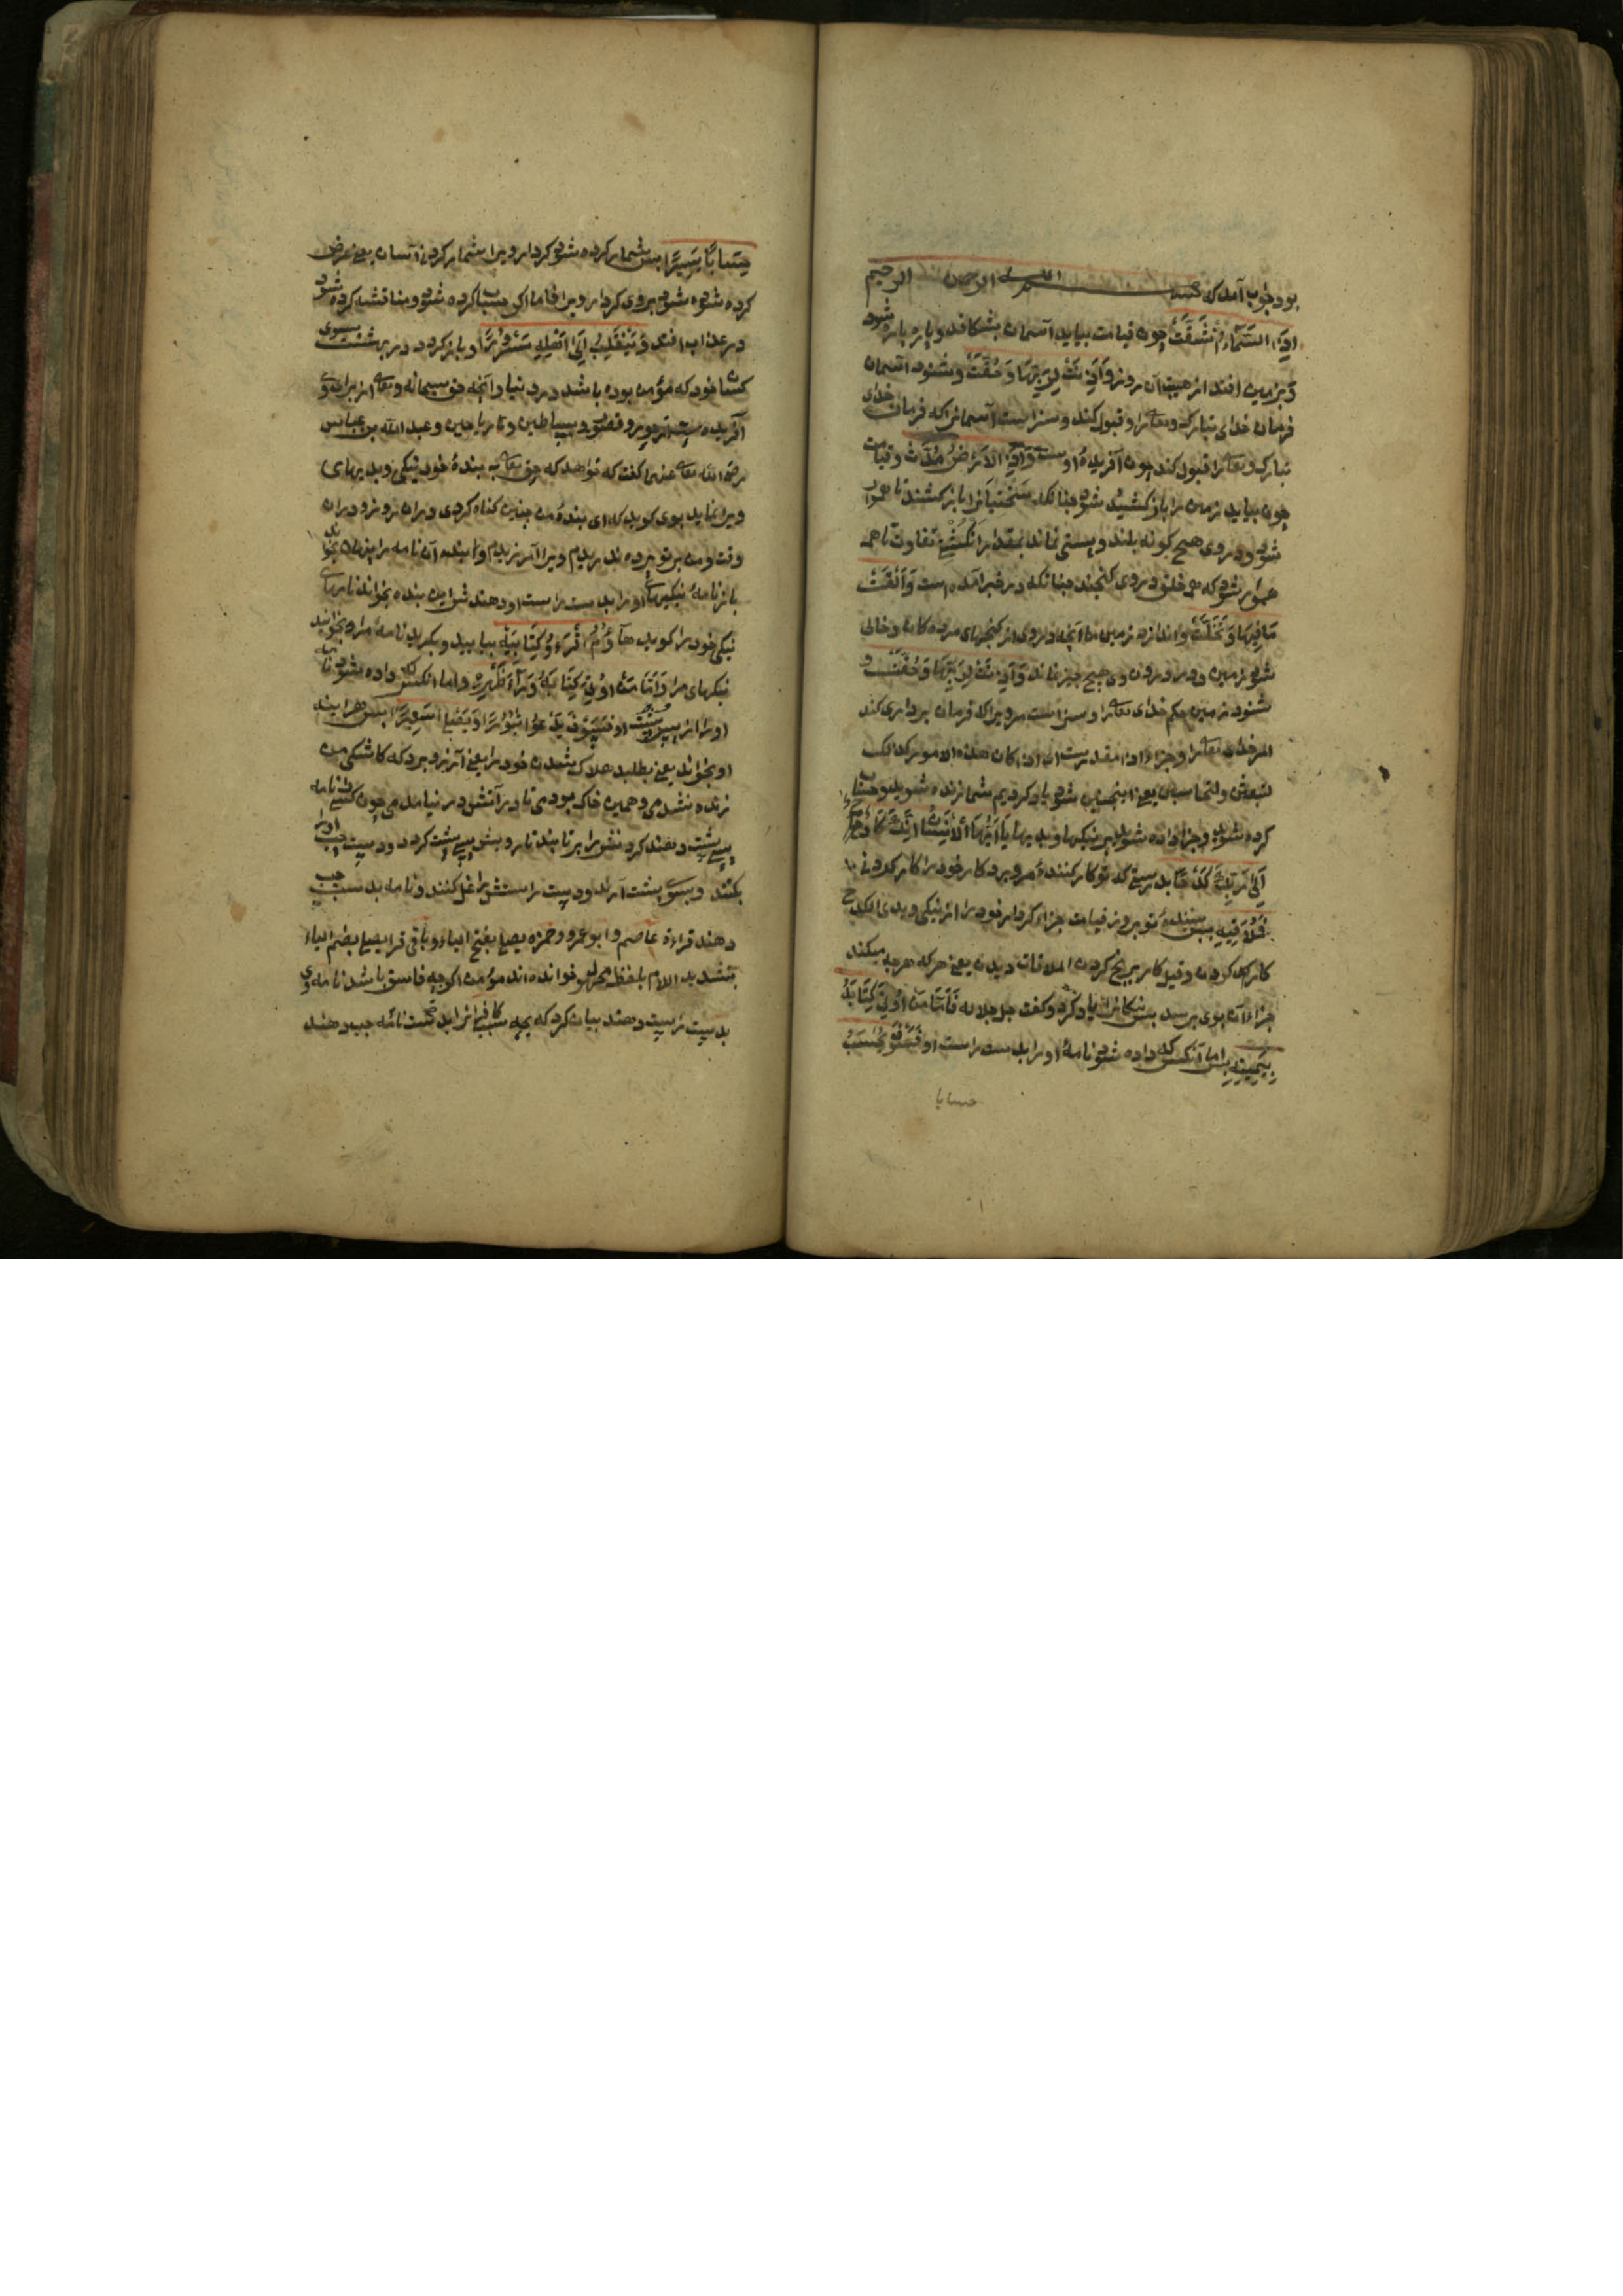 بود جواب آمد که بسم الله الرحمن الرحیم
اِذَا السَّمَاءُ انْشَقَّتْ چون قیامت بیاید آسمان بشکافد و پاره پاره شود
و بر زمین افتد از هیبت آن روز وَاَذِنَتْ لِرَبِّهَا وَحُقَّتْ و بشنود آسمان
فرمان خدای تبارک وتعالی را و قبول کند و سزاست آسمانرا که فرمان خدای
تبارک وتعالی را قبول کند چون آفریدهٔ اوست وَاِذَا الْاَرْضُ مُدَّتْ و قیامت
چون بیاید زمین را باز کشیده شود چنانکه سختیانرا باز کشند تا هموار
شود و در وی هیچ گونه بلند و پستی نماند بمقدار انگشتی تفاوت تا همه
هموار شود که همه خلق در وی گنجند چنانکه در خبر آمده است وَاَلْقَتْ
مَا فِيهَا وَتَخَلَّتْ و اندازد زمین ما آنچه در وی از گنجهای مردهکانه و خالی
شود زمین و در درون وی هیچ چیز نماند وَاَذِنَتْ لِرَبِّهَا وَحُقَّتْ و
شنود زمین حکم خدای تعالی را و سزاست مر ویرا که فرمان برداری کند
امر خدای تعالی را و جزاء اذا مقدرست ای اذا کان هذه الامور کذلک
لتبعثن ولتحاسبن یعنی اینچنین شود یاد کردیم شما زنده شوید و حساب
کرده شوید و جزا داده شوید بر نیکیها و بدیها يَا اَيُّهَا الْاِنْسَانُ اِنَّكَ كَادِحٌ
اِلَى رَبِّكَ كَدْحًا بدرستی که تو کار کنندهٔ مر و برد کار خود را کار کردنی
فَمُلَاقِيهِ پس بینندهٔ تو بروز قیامت جزاء کردار خود را از نیکی و بدی الکدح
کار کردن و قیل کار برنج کردن الملاقات دیدن یعنی هر که هرچه میکند
جزاء آن بوی برسد پس نیکانرا یاد کرد و گفت جل جلاله فَاَمَّا مَنْ اُوتِيَ كِتَابَهُ
بِيَمِينِهِ پس اما آنکس که داده شود نامهٔ او را بدست راست او فَسَوْفَ يُحَاسَبُ
حسابا
حِسَابًا يَسِيرًا پس شمار کرده شود کردار ویرا شمار کردنی آسان یعنی عرض
کرده شود بروی کردار ویرا فاما اگر حساب کرده شود و مناقشه کرده شود
در عذاب افتد وَيَنْقَلِبُ اِلَى اَهْلِهِ مَسْرُورًا و باز گردد در بهشت بسوی
کسان خود که مؤمن بوده باشد در دنیا و آنچه حق سبحانه وتعالی از برای وی
آفریده است از حور و قصور و بساطین و ریاحین و عبد الله بن عباس
رضی الله تعالی عنهما گفت که خواهد که حق تعالی به بندهٔ خود نیکی و بدیهای
ویرا نماید بوی گوید که ای بندهٔ من چنین گناه کردی در آن روز و در آن
وقت و من بر تو پرده ندریدم ویرا آمرزیدم و آن نامه را پنهان بخواند
باز نامهٔ نیکیهای او را بدست راست او دهند این بنده بخواند نامهای
نیکی خود را گوید هَاؤُمُ اقْرَءُوا كِتَابِيَهْ بیایید و بگیرید نامهٔ مرا و بخوانید
نیکیهای مرا وَاَمَّا مَنْ اُوتِيَ كِتَابَهُ وَرَاءَ ظَهْرِهِ و اما آنکس که داده شود نامهٔ
او را از پس پشت او فَسَوْفَ يَدْعُوا ثُبُورًا وَيَصْلَى سَعِيرًا پس هر آیند
او بخواند یعنی بطلبد هلاک شدن خود را یعنی آرزو برد که کاشکی من
زنده نشدمی و همین خاک بودمی تا در آتش در نیامدمی چون کسی را نامه
پس پشت دهند گردنش را بر تابند تا رویش پس پشت گردد و دست چپ او را
بکنند و بسوی پشت آرند و دست راستش را غل کنند و نامه بدست چپ
دهند قراءة عاصم و ابو عمرو و حمزه یصلی بفتح الیاء و باقی قرا یصلی بضم الیاء
بتشدید اللام بلفظ مجهول خوانده اند مؤمن اگرچه فاسق باشد نامه وی
بدست راست دهند بیان کرد که بچه سبب کافرانرا بدست نامه چپ دهند